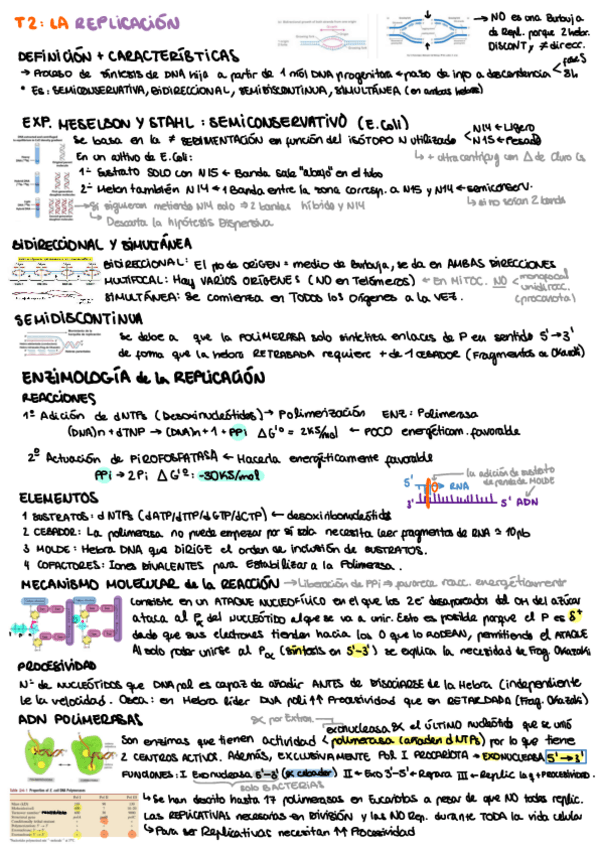 T2: LA REPLICACIÓN
→ NO es una Burbuja
de Repl. porque 2 hebr.
DISCONT, ≠ direcc.
DEFINICIÓN + CARACTERÍSTICAS
→ Proceso de síntesis de DNA hija a partir de 1 mol DNA progenitora + paso de info a descendencia
* Es: SEMICONSERVATIVA, BIDIRECCIONAL, SEMIDISCONTINUA, SIMULTÁNEA (en ambas hebras)
EXP. MESELSON Y STAHL: SEMICONSERVATIVO (E.Coli)
Se basa en la ≠ SEDIMENTACIÓN en función del ISÓTOPO N utilizado < N14 ← Ligero
N15 ← Pesado
En un cultivo de E.Coli:
↳ + ultracentrifug con Δ de Cloro Cs
1º Sustrato SOLO con N15 ← Banda sale "abajo" en el tubo
2º Meten también N14 ← 1 Banda entre la zona corresp. a N15 y N14 ← semiconserv.
→ Si siguieran metiendo N14 solo ⇒ 2 bandas híbrida y N14
↳ si no serían 2 bands
↳ Descarta la hipótesis Dispersiva
BIDIRECCIONAL Y SIMULTÁNEA
BIDIRECCIONAL: El pto de ORIGEN = medio de Burbuja, se da en AMBAS DIRECCIONES
MULTIFOCAL: Hay VARIOS ORÍGENES (NO en Telómeros) ← En MITOC. NO < monofocal
unidirecc.
(procariota)
SIMULTÁNEA: Se comienza en TODOS los Orígenes a la VEZ.
SEMIDISCONTINUA
Se debe a que la POLIMERASA solo sintetiza enlaces de P en sentido 5'→3'
de forma que la hebra RETRASADA requiere + de 1 CEBADOR (Fragmentos de Okazaki)
ENZIMOLOGÍA de la REPLICACIÓN
REACCIONES
1º Adición de dNTPs (Desoxinucleótidos) → Polimerización ENZ: Polimerasa
(DNA)n + dTNP → (DNA)n+1 + PPi ΔG'º = 2KJ/mol ← POCO energéticam. favorable
2º Actuación de PIROFOSFATASA ← Hacerla energéticamente favorable
PPi → 2Pi ΔG'º: -30KJ/mol
la adición de sustrato
depende de MOLDE
5' RNA
3' 5' ADN
ELEMENTOS
1 SUSTRATOS: dNTPs (dATP/dTTP/dGTP/dCTP) ← desoxirribonucleótidos
2 CEBADOR: La polimerasa no puede empezar por sí sola necesita leer fragmentos de RNA ≈ 10pb
3 MOLDE: Hebra DNA que DIRIGE el orden de inclusión de SUSTRATOS.
4 COFACTORES: Iones BIVALENTES para Estabilizar a la Polimerasa.
MECANISMO MOLECULAR de la REACCIÓN → Liberación de PPi → favorece reacc. energéticament
Consiste en un ATAQUE NUCLEOFÍLICO en el que los 2e⁻ desapareados del OH del azúcar
ataca al Pα del NUCLEÓTIDO al que se va a unir. Esto es posible porque el P es δ⁺
dado que sus electrones tienden hacia los O que lo RODEAN, permitiendo el ATAQUE
Al solo poder unirse al Pα (síntesis en 5'-3') se explica la necesidad de Frag. Okazaki
PROCESIVIDAD
Nº de NUCLEÓTIDOS que DNA pol es capaz de añadir ANTES de DISOCIARSE de la Hebra (independiente
de la velocidad). Osea: en Hebra líder DNA poli ↑↑ Procesividad que en RETARDADA (Frag. Okazaki)
ADN POLIMERASAS
exonucleasa
el último nucleótido que se unió
Son enzimas que tienen actividad < polimerasa (añaden dNTPs) por lo que tiene
2 CENTROS ACTIVOS. Además, EXCLUSIVAMENTE Pol I PROCARIOTA → EXONUCLEASA 5'→3'
FUNCIONES: I Exonucleasa 5'-3' II ← Exo 3'-5' + Repara III ← Replic lag + PROCESIVIDAD
SOLO BACTERIAS
↳ Se han descrito hasta 17 polimerasas en Eucariotas a pesar de que NO todas replic.
Las REPLICATIVAS necesarias en DIVISIÓN y las NO Rep. durante TODA la vida celular
↳ Para ser Replicativas necesitan ↑↑ Procesividad